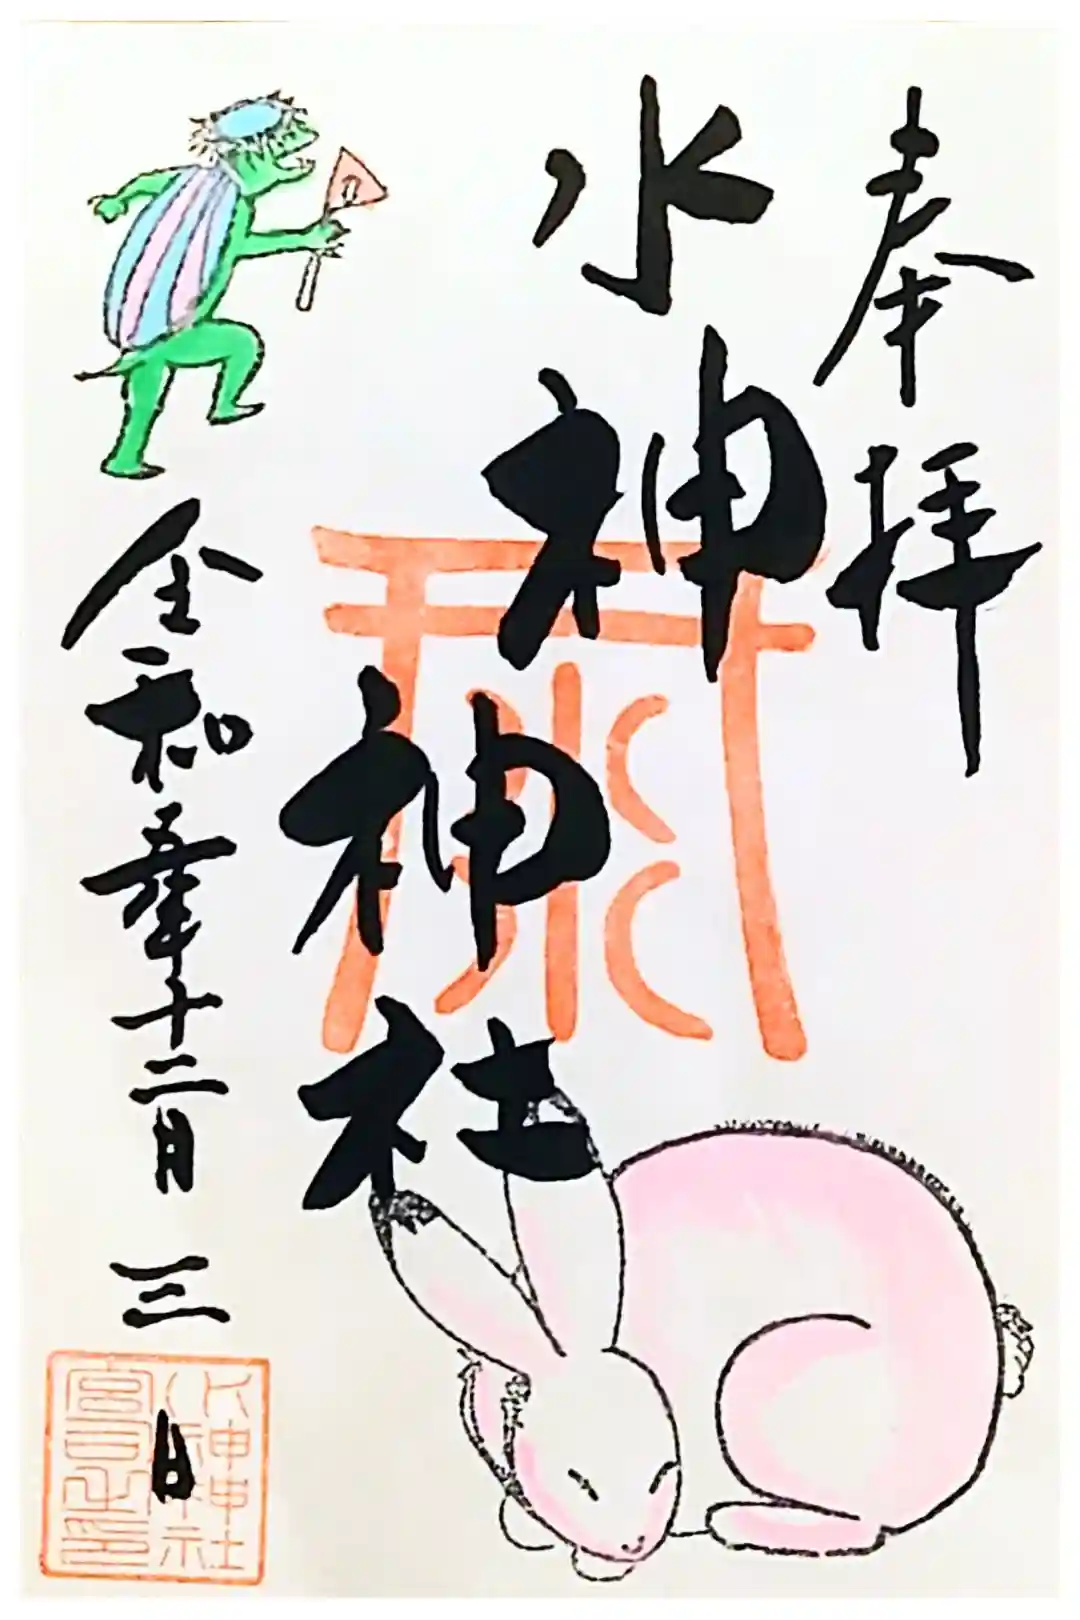 奉拝
水神神社
令和五年十二月三日
水神神社
宮司之印